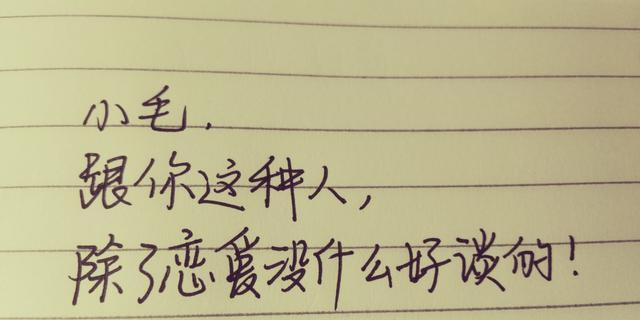 小毛.
跟你这种人,
除了恋爱没什么好谈的!